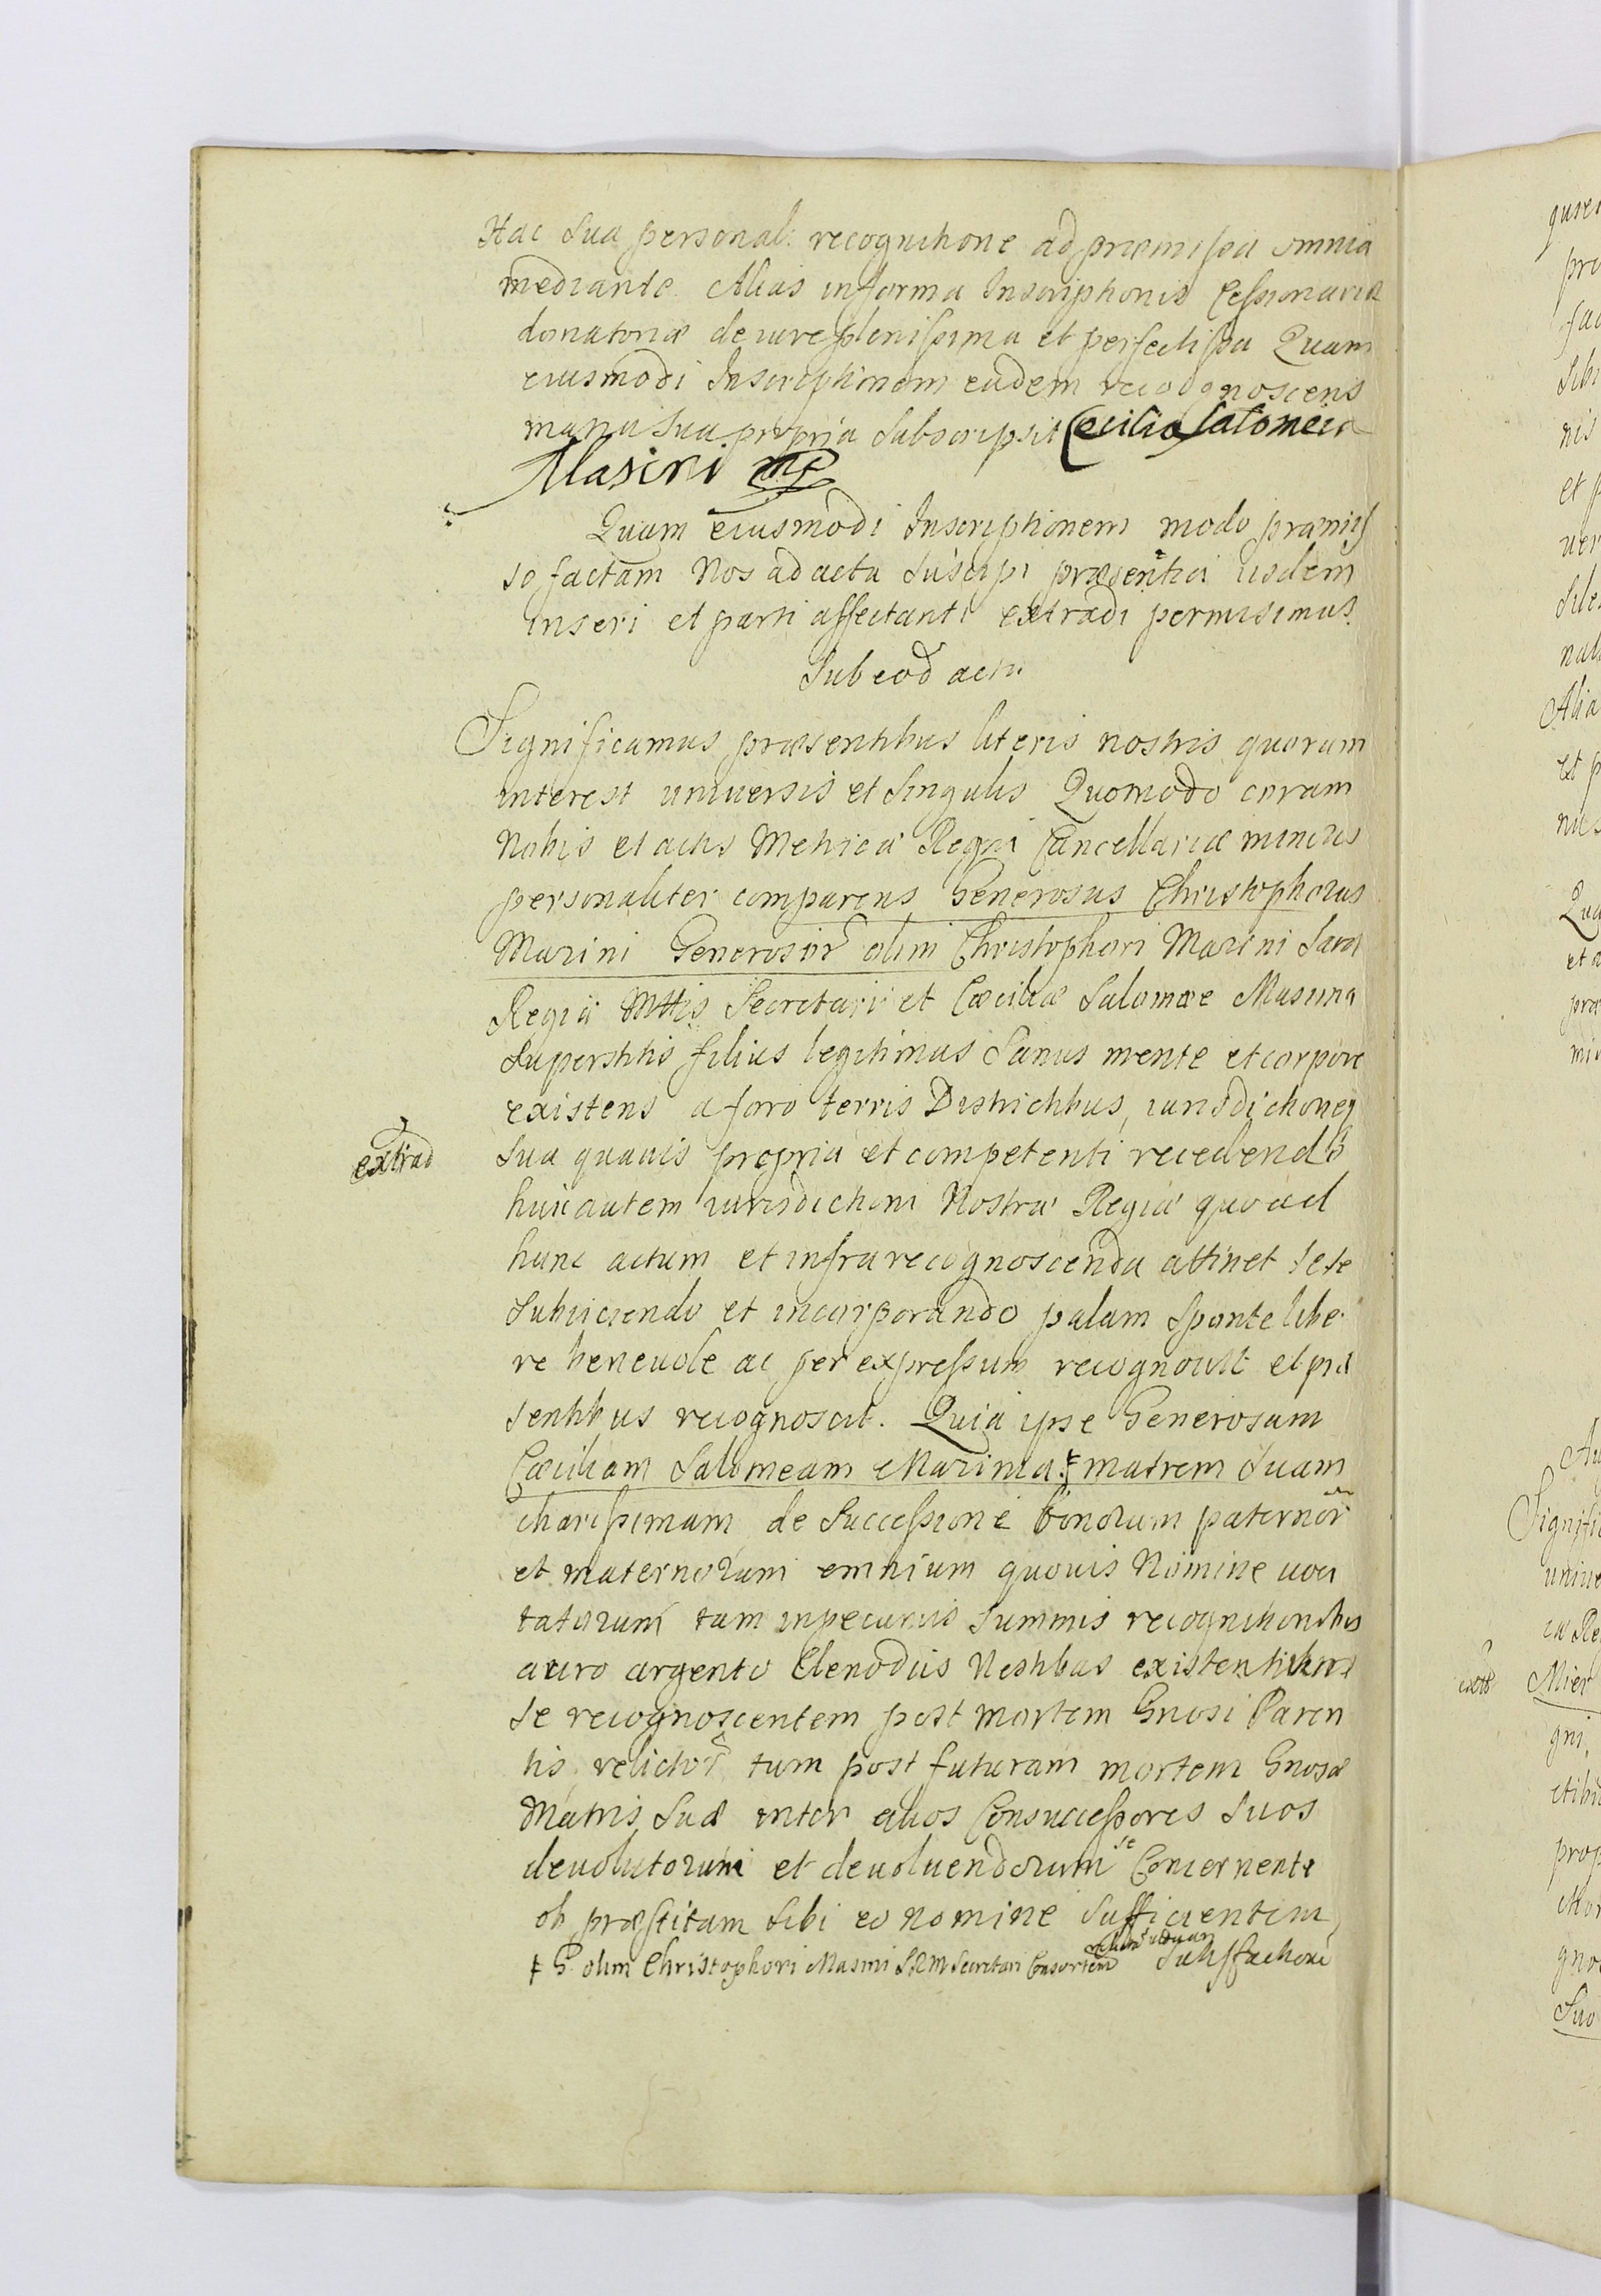 Hac sua personal: recognitione ad præmissa omnia
mediante. Alias in forma Inscriptionis Cessionariæ
donatoriæ de iure plenissima et perfectissa Quam
eiusmodi Inscriptionem eadem recognoscens
manu sua propria subscripsit Cecilia Salomeia
Masini mp
Quam eiusmodi Inscriptionem modo præmis
so factam Nos ad acta suscipi præsentia iisdem
inseri et parti affectanti extradi permisimus.
Sub eod actu
Significamus præsentibus literis nostris quorum
interest universis et singulis Quomodo coram
Nobis et actis Metrices Regni Cancellariæ minoris
personaliter comparens Generosus Christophorus
Mazini Generosor olim Christophori Mazini Sacræ
Regiæ Mttis Secretarii et Cæciliæ Salomæe Masinna
superstitis filius legitimus sanus mente et corpore
existens a foro terris Districtibus, iurisdictioneq
extrad
sua quavis propria et competenti recedendo
huic autem iurisdictioni Nostræ Regiæ quoad
hunc actum et infra recognoscenda attinet sese
subiiciendo et incorporando palam sponte libe
re beneuole ac per expressum recognouit et præ
sentibus recognoscit. Quia ipse Generosam
Cæciliam Salomeam Mazinia ⱡ matrem suam
charissimam de successione bonorum paternor
et maternorum omnium quouis Nomine uoci
tatorum tam in pecuniis summis recognitionibus
auro argento Clenodiis Vestibus existentibus
se recognoscentem post mortem Gnosi Paren
tis relictor tum post futuram mortem Gnosæ
Matris suæ inter alios Consuccessores suos
deuolutorum et deuoluendorum se Concernente
ob præstitam sibi eo nomine sufficientem
ⱡ G. olim Christophori Masini S.R.M Secretari Consortem uiduam satisfactione